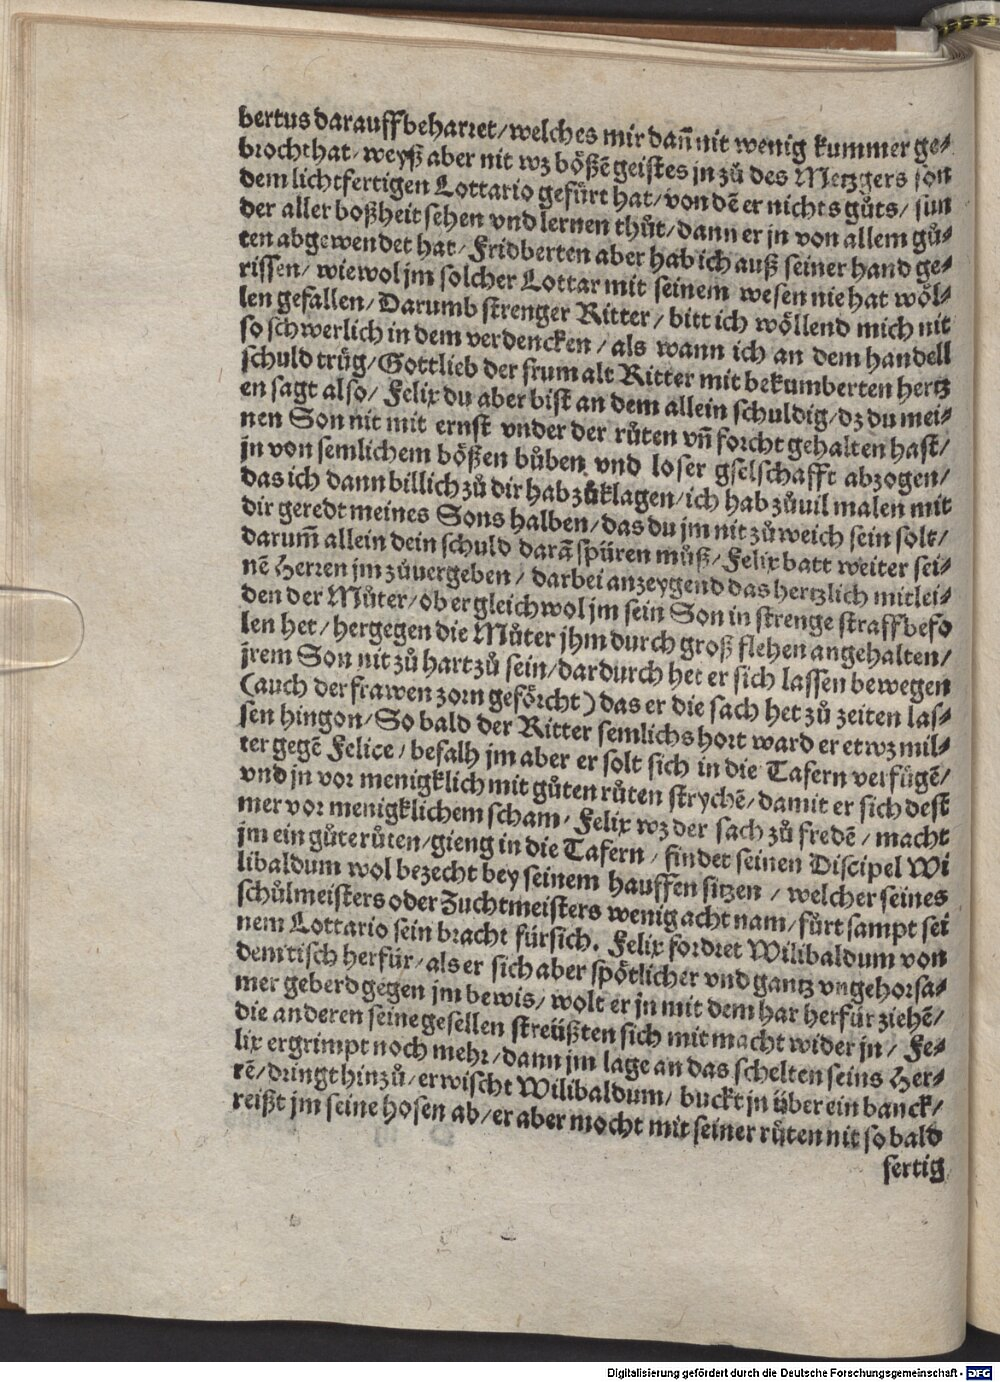 bertus darauff beharret / welches mir dañ nit wenig kummer ge⸗
brocht hat / weyß aber nit wz bößẽ geistes jn zů des Metzgers son
dem lichtfertigen Lottario gefürt hat / von dẽ er nichts gůts / sun
der aller boßheit sehen vnd lernen thůt / dann er jn von allem gů⸗
ten abgewendet hat / Fridberten aber hab ich auß seiner hand ge⸗
rissen / wiewol jm solcher Lottar mit seinem wesen nie hat wöl⸗
len gefallen / Darumb strenger Ritter / bitt ich wöllend mich nit
so schwerlich in dem verdencken / als wann ich an dem handell
schuld trüg / Gottlieb der frum alt Ritter mit bekumberten hertz
en sagt also / Felix du aber bist an dem allein schuldig / dz du mei⸗
nen Son nit mit ernst vnder der růten vñ forcht gehalten hast /
jn von semlichem bößen bůben vnd loser gselschafft abzogen /
das ich dann billich zů dir hab zůklagen / ich hab zůuil malen mit
dir geredt meines Sons halben / das du jm nit zůweich sein solt /
darum̃ allein dein schuld darã spüren můß / Felix batt weiter sei⸗
nẽ Herren jm zůuergeben / darbei anzeygend das hertzlich mitlei⸗
den der Můter / ob er gleichwol jm sein Son in strenge straff befo
len het / hergegen die Můter jhm durch groß flehen angehalten /
jrem Son nit zů hart zů sein / dardurch het er sich lassen bewegen
(auch der frawen zorn geförcht) das er die sach het zů zeiten las⸗
sen hingon / So bald der Ritter semlichs hort ward er etwz mil⸗
ter gegẽ Felice / befalh jm aber er solt sich in die Tafern verfügẽ /
vnd jn vor menigklich mit gůten růten strychẽ / damit er sich dest
mer vor menigklichem scham / Felix wz der sach zů fredẽ / macht
jm ein gůte růten / gieng in die Tafern / findet seinen Discipel Wi
libaldum wol bezecht bey seinem hauffen sitzen / welcher seines
schůlmeisters oder Zuchtmeisters wenig acht nam / fürt sampt sei
nem Lottario sein bracht fürsich. Felix fordret Wilibaldum von
dem tisch herfür / als er sich aber spötlicher vnd gantz vngehorsa⸗
mer geberd gegen jm bewis / wolt er jn mit dem har herfür ziehẽ /
die anderen seine gesellen streüßten sich mit macht wider jn / Fe⸗
lix ergrimpt noch mehr / dann jm lage an das schelten seins Her⸗
rẽ / dringt hinzů / erwischt Wilibaldum / buckt jn über ein banck /
reißt jm seine hosen ab / er aber mocht mit seiner růten nit so bald
fertig
Digitalisierung gefördert durch die Deutsche Forschungsgemeinschaft - DFG